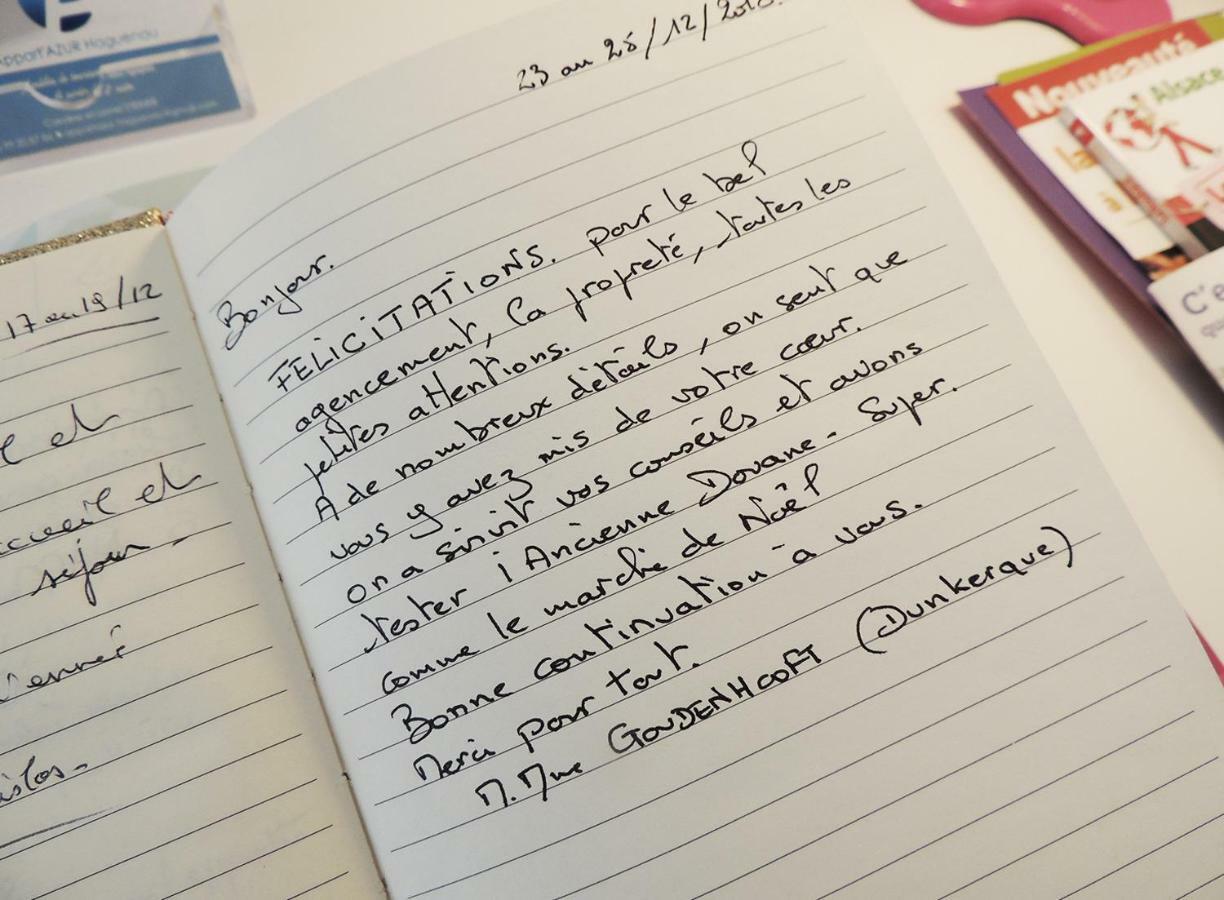 Appart'AZUR Haguenau
17 au 19/12
et
accueil et
séjour -
23 au 28/12/
Bonjour.
FELICITATIONS. pour le bel
agencement, la propreté, toutes les
petites attentions.
A de nombreux détails, on sent que
vous y avez mis de votre cœur.
on a suivit vos conseils et avons
tester l'Ancienne Douane - Super.
comme le marché de Noël
Bonne continuation à vous.
Merci pour tout.
M. Mme GOUDENHOOFT (Dunkerque)
Nouveauté
la
à
Alsace
C'e
qu